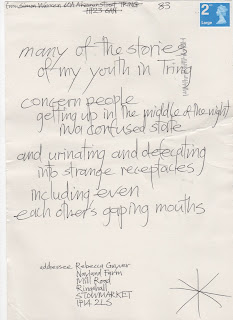 from Simon Warner 60A Akeman Street TRING 83
HP23 6AH
2nd
LARGE
many of the stories
of my youth in Tring
concern people
getting up in the middle of the night
in a confused state
and urinating and defecating
into strange receptacles
including even
each other's gaping mouths
addressee Rebecca
Nayland Farm
Mill Road
Ringshall
STOWMARKET
IP14 2LS